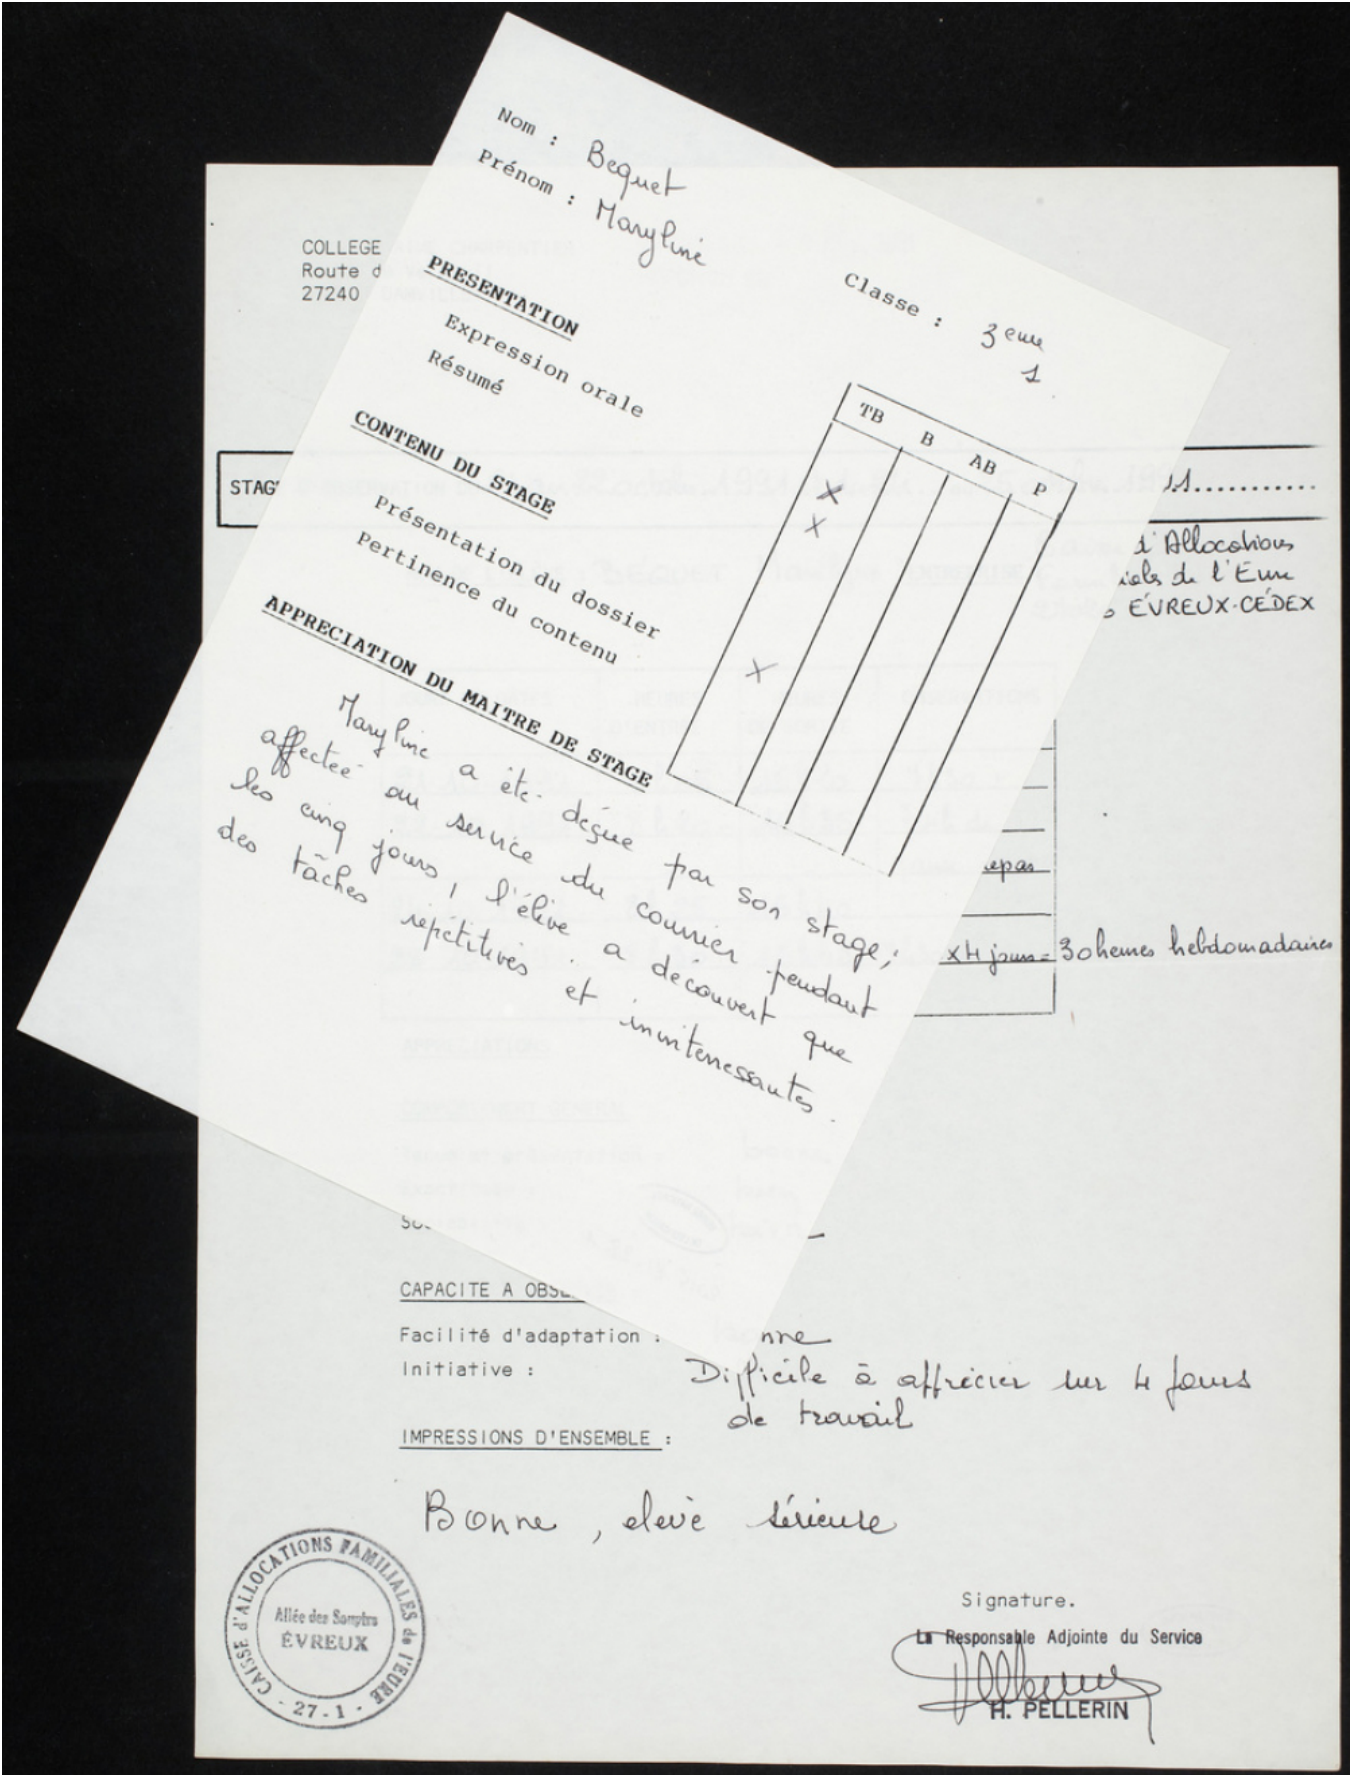 Nom : Bequet
Prénom : Maryline
Classe : 3eme
1
PRESENTATION
Expression orale
Résumé
CONTENU DU STAGE
Présentation du dossier
Pertinence du contenu
TB B AB P
X
X
X
APPRECIATION DU MAITRE DE STAGE
Maryline a été déçue par son stage;
affectée au service du courrier pendant
les cinq jours, l'élève a découvert que
des tâches répétitives et inintéressantes.
COLLEGE
Route d
27240
STAG
11............
d'Allocations
iales de l'Eure
ÉVREUX-CÉDEX
epas
x 4 jours = 30 heures hebdomadaires
CAPACITE A OBS
Facilité d'adaptation : nne
Initiative : Difficile à apprécier sur 4 jours
de travail
IMPRESSIONS D'ENSEMBLE :
Bonne, elevè sérieuse
CAISSE d'ALLOCATIONS FAMILIALES de l'EURE
Allée des Soupirs
ÉVREUX
- 27-1 -
Signature.
La Responsable Adjointe du Service
H. PELLERIN